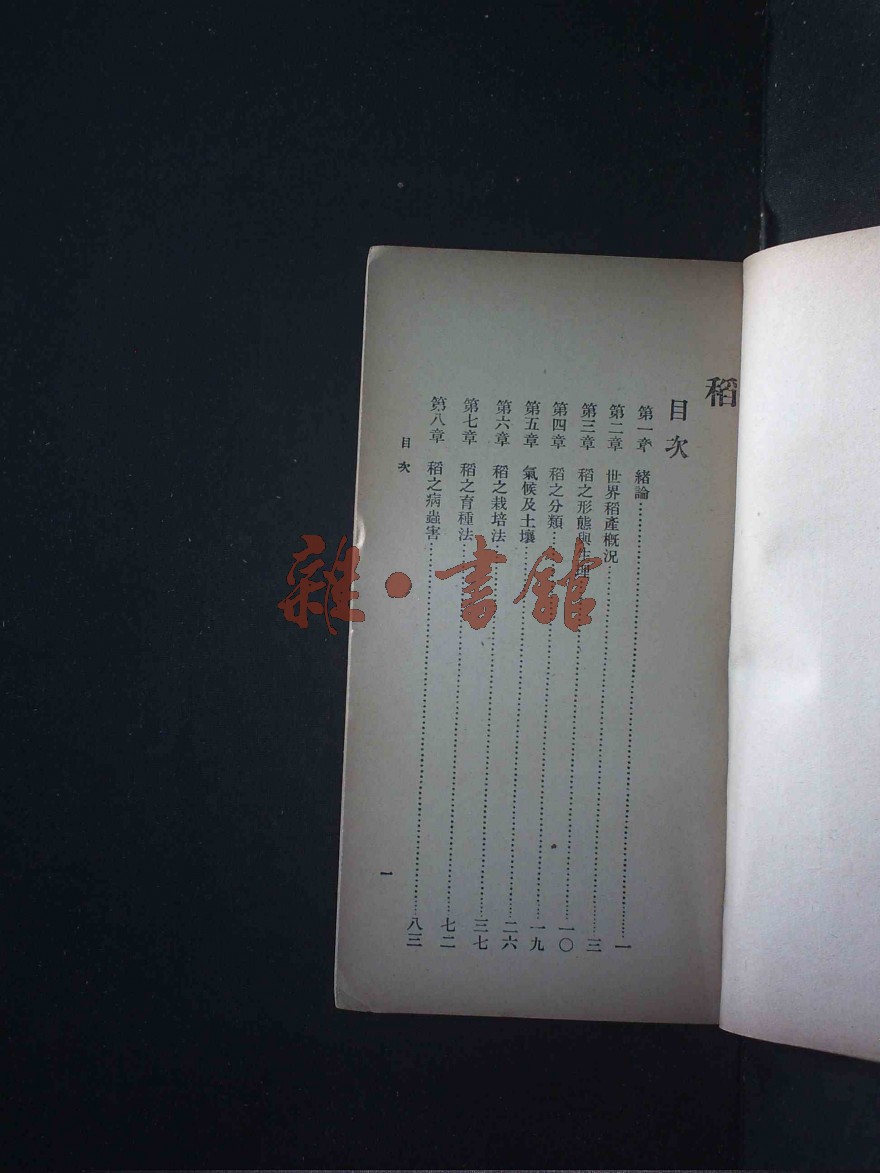 稻
目次
第一章 緒論 一
第二章 世界稻產概況 三
第三章 稻之形態與生理 一〇
第四章 稻之分類 一九
第五章 氣候及土壤 二六
第六章 稻之栽培法 三七
第七章 稻之育種法 七二
第八章 稻之病蟲害 八三
目次
一
雜·書館